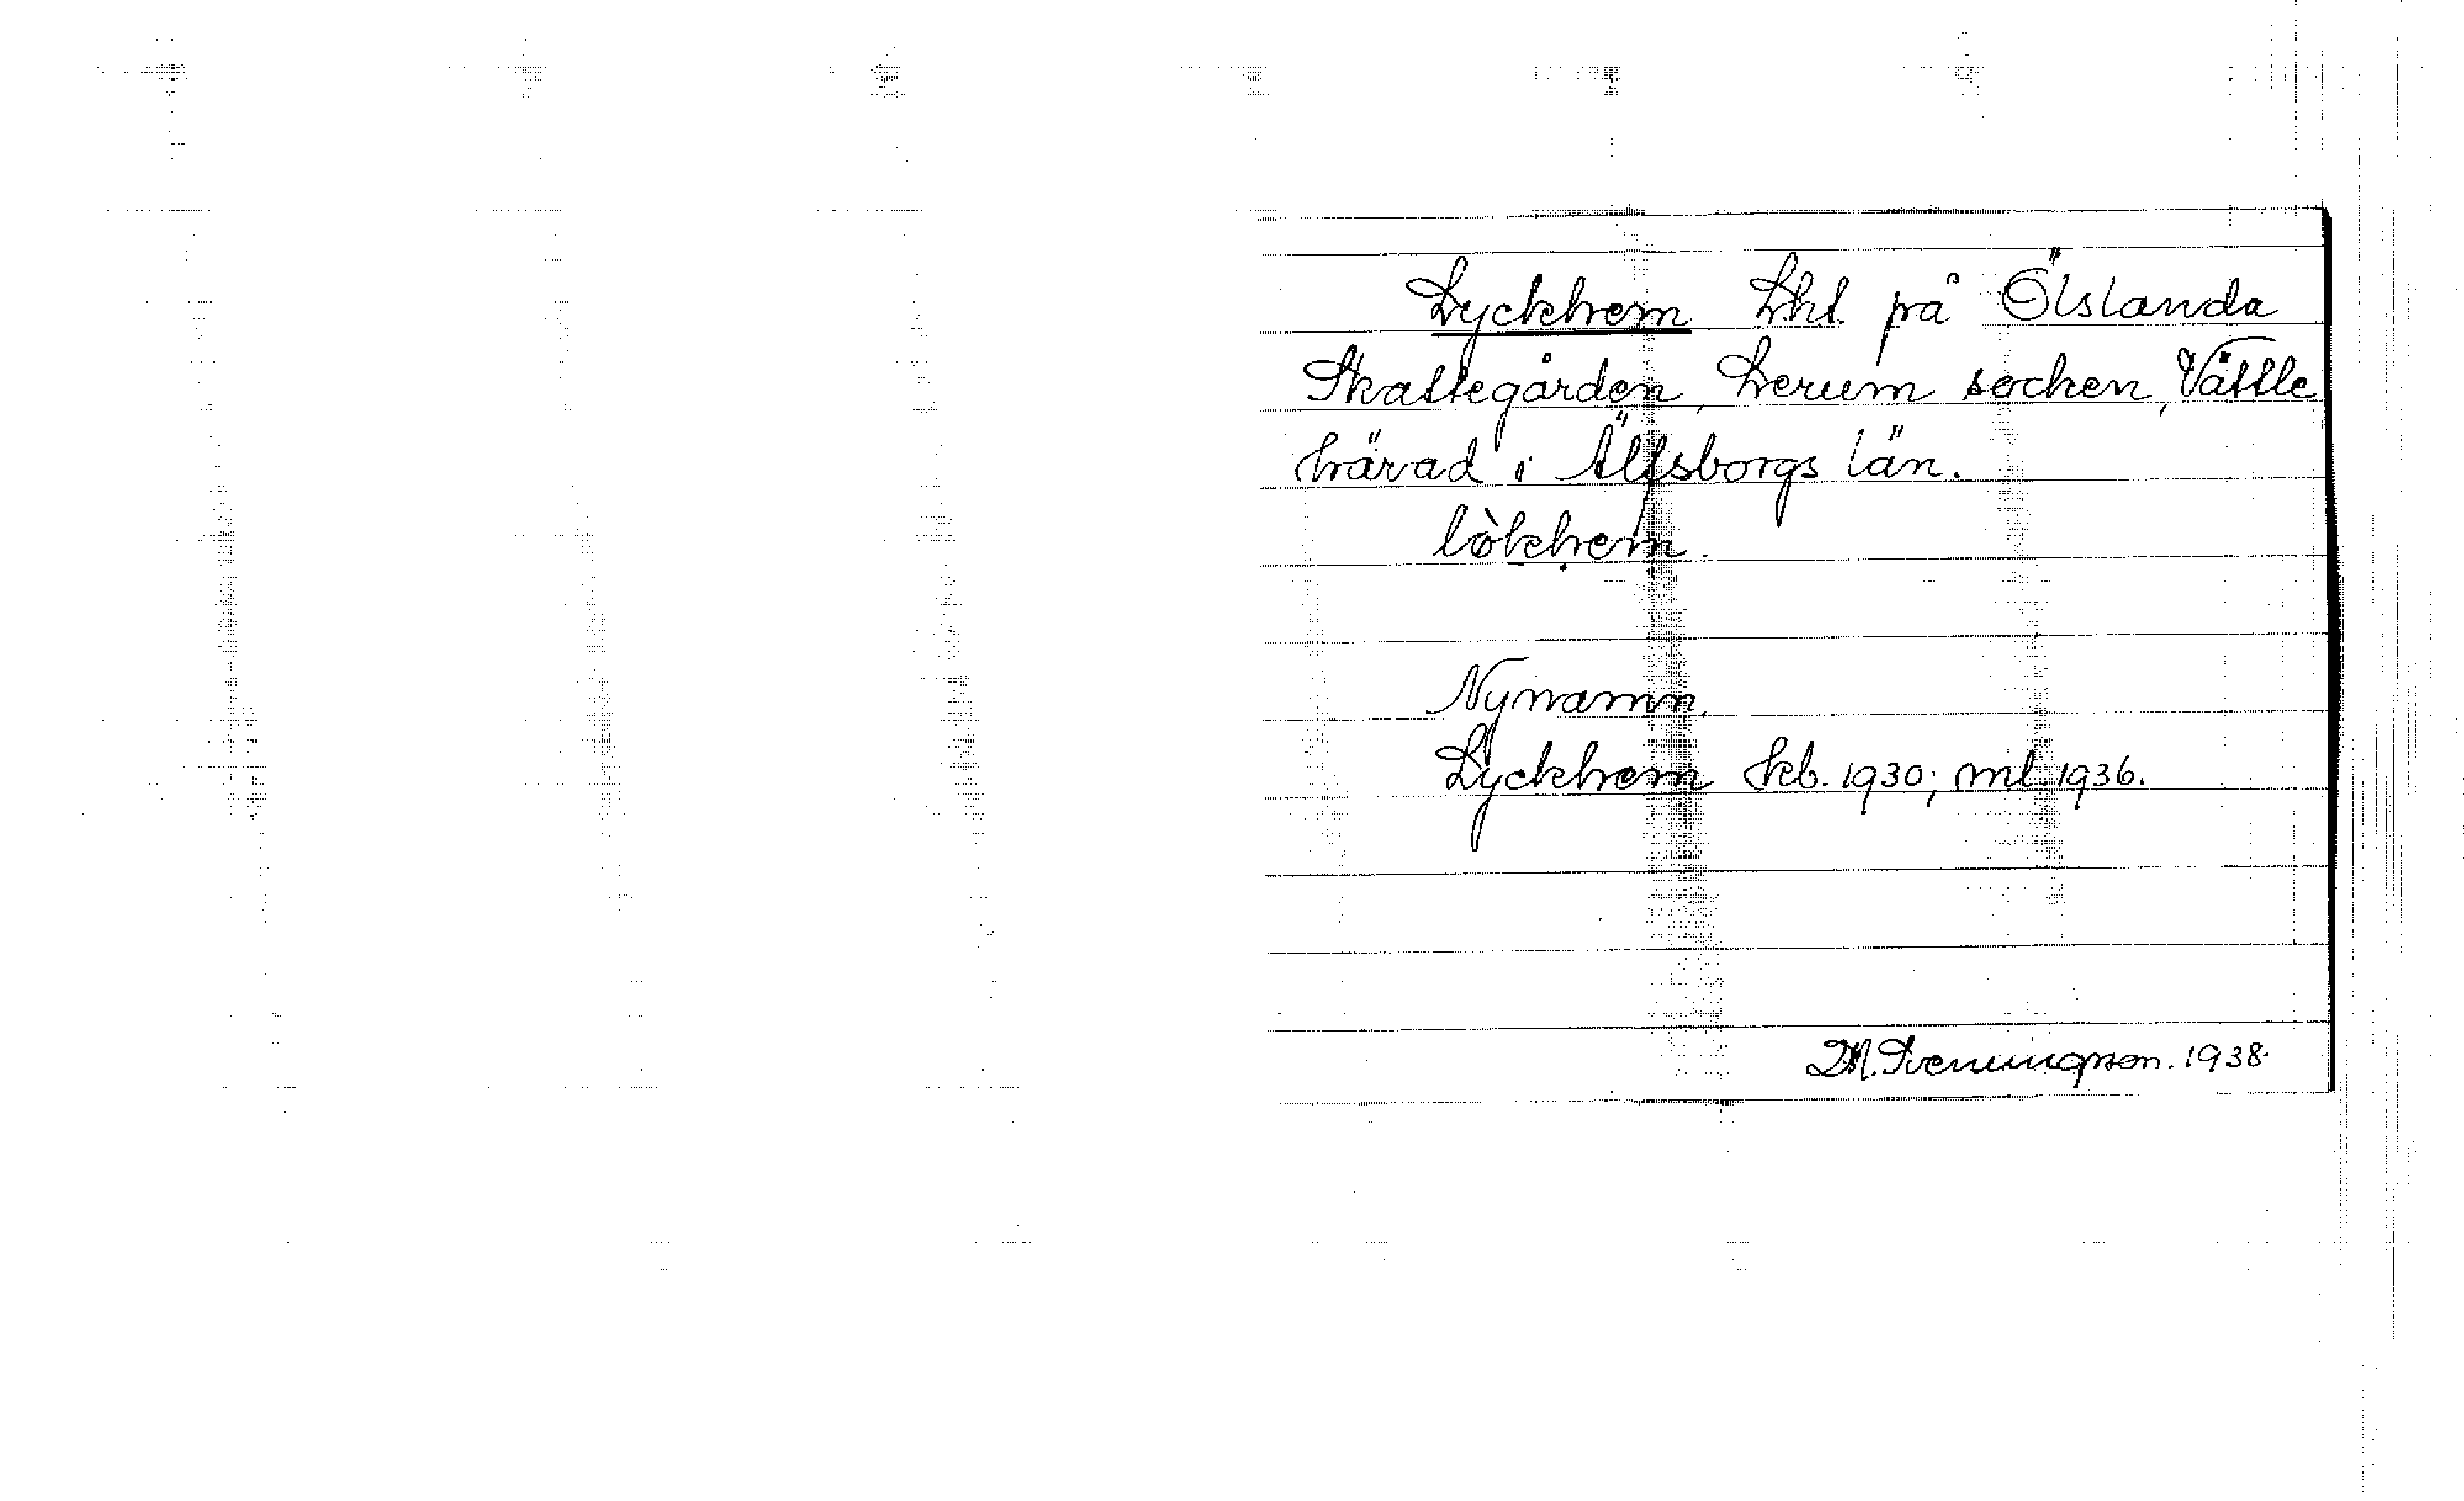 Lyckhem Lht på Ölslanda
Skattegården, Lerum socken, Vättle
härad i Älfsborgs län.
lòkhem.
Nynamn.
Lyckhem kb. 1930; ml 1936.
M. Svenningson. 1938